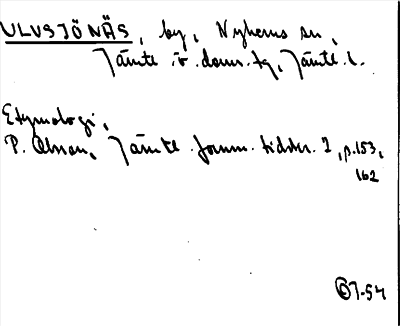 ULVSJÖNÄS, by, Nyhems sn,
Jämtl. ö. doms. tg, Jämtl. l.
Etymologi,
P. Olsson, Jämtl. fornm. tidskr. 2, p. 153,
162
7-54